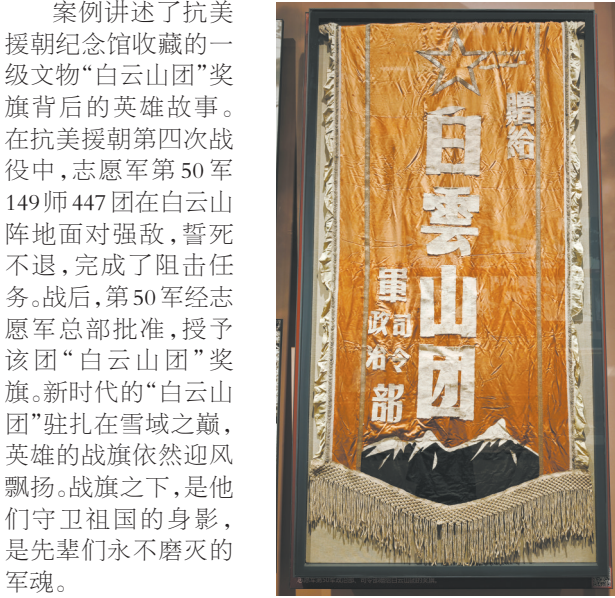 案例讲述了抗美
援朝纪念馆收藏的一
级文物“白云山团”奖
旗背后的英雄故事。
在抗美援朝第四次战
役中,志愿军第50军
149师447团在白云山
阵地面对强敌,誓死
不退,完成了阻击任
务。战后,第50军经志
愿军总部批准,授予
该团“白云山团”奖
旗。新时代的“白云山
团”驻扎在雪域之巅,
英雄的战旗依然迎风
飘扬。战旗之下,是他
们守卫祖国的身影,
是先辈们永不磨灭的
军魂。
赠给
白雲山团
軍
司令
政治
部